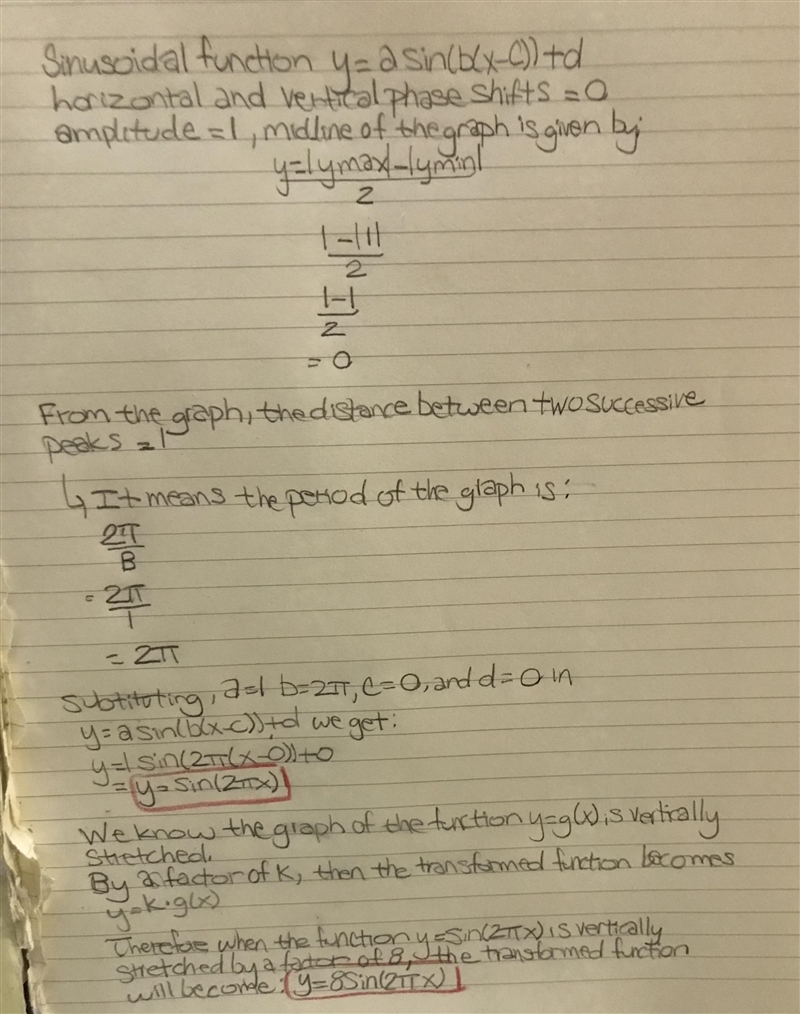 Sinusoidal function y=a sin(b(x-c))+d
horizontal and vertical phase shifts = 0
amplitude = 1, midline of the graph is given by
y=|ymax|-|ymin|
2
1-|1|
2
1-1
2
= 0
From the graph, the distance between two successive
peaks = 1
↳ It means the period of the graph is:
2π
B
= 2π
1
= 2π
Subtituting, a=1 b=2π, c=0, and d=0 in
y=a sin(b(x-c))+d we get:
y=1 sin(2π(x-0))+0
= y=sin(2πx)
We know the graph of the function y=g(x), is vertically
stretched.
By a factor of K, then the transformed function becomes
y=k·g(x)
Therefore when the function y=sin(2πx) is vertically
stretched by a factor of 8, the transformed function
will become: y=8sin(2πx)